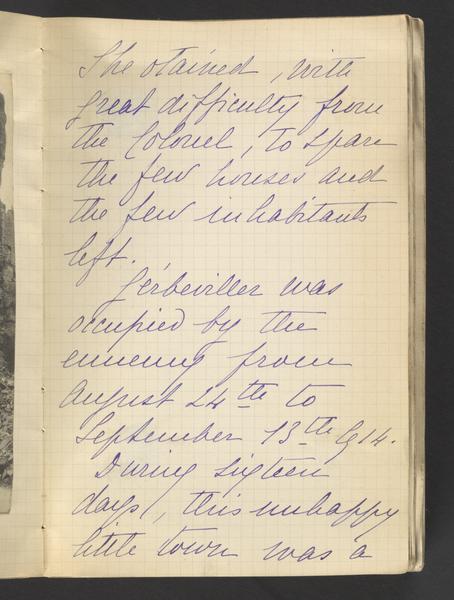 She otained, with
great difficulty from
the Colonel, to spare
the few houses and
the few inhabitants
left.
Gérbeviller was
occupied by the
ennemy from
August 24th to
September 13th 1914.
During sixteen
days, this unhappy
little town was a